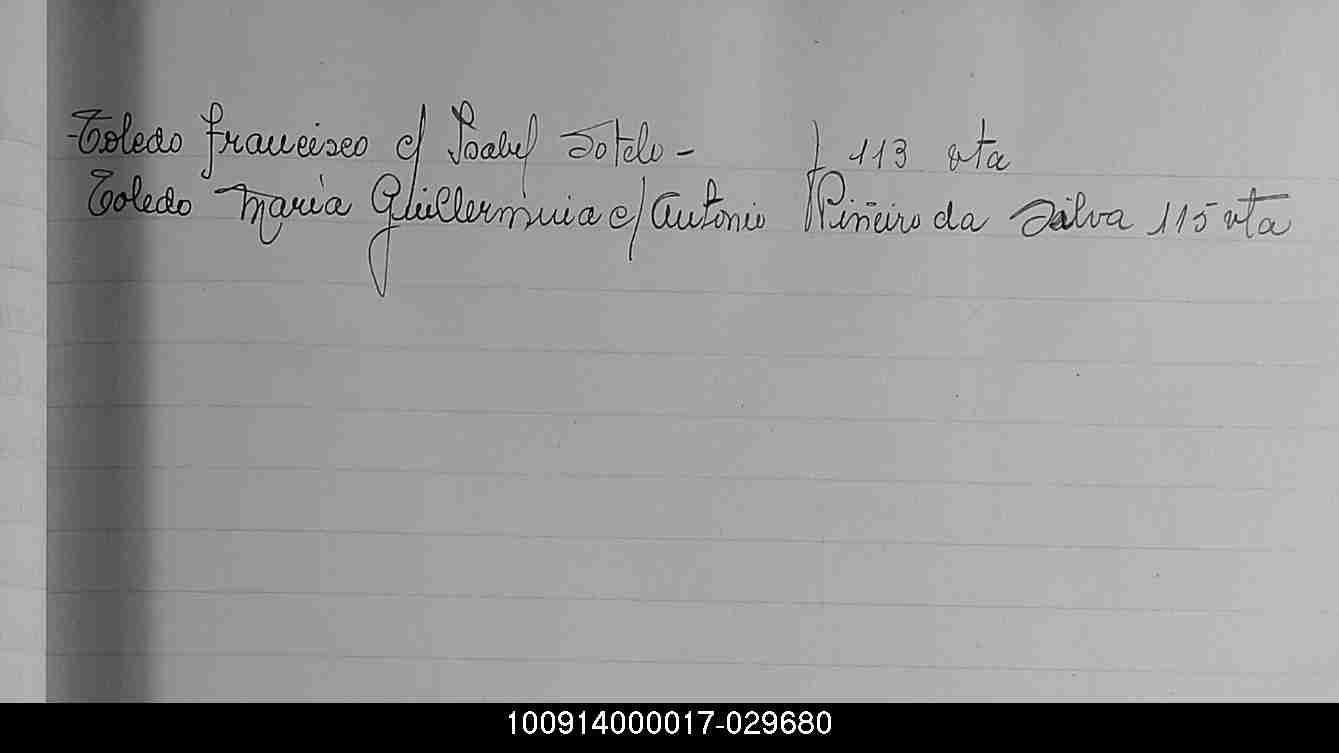 Toledo Francisco c/ Isabel Sotelo - f 113 vta
Toledo María Guillermina c/ Antonio Piñeiro da Silva 115 vta
100914000017-029680